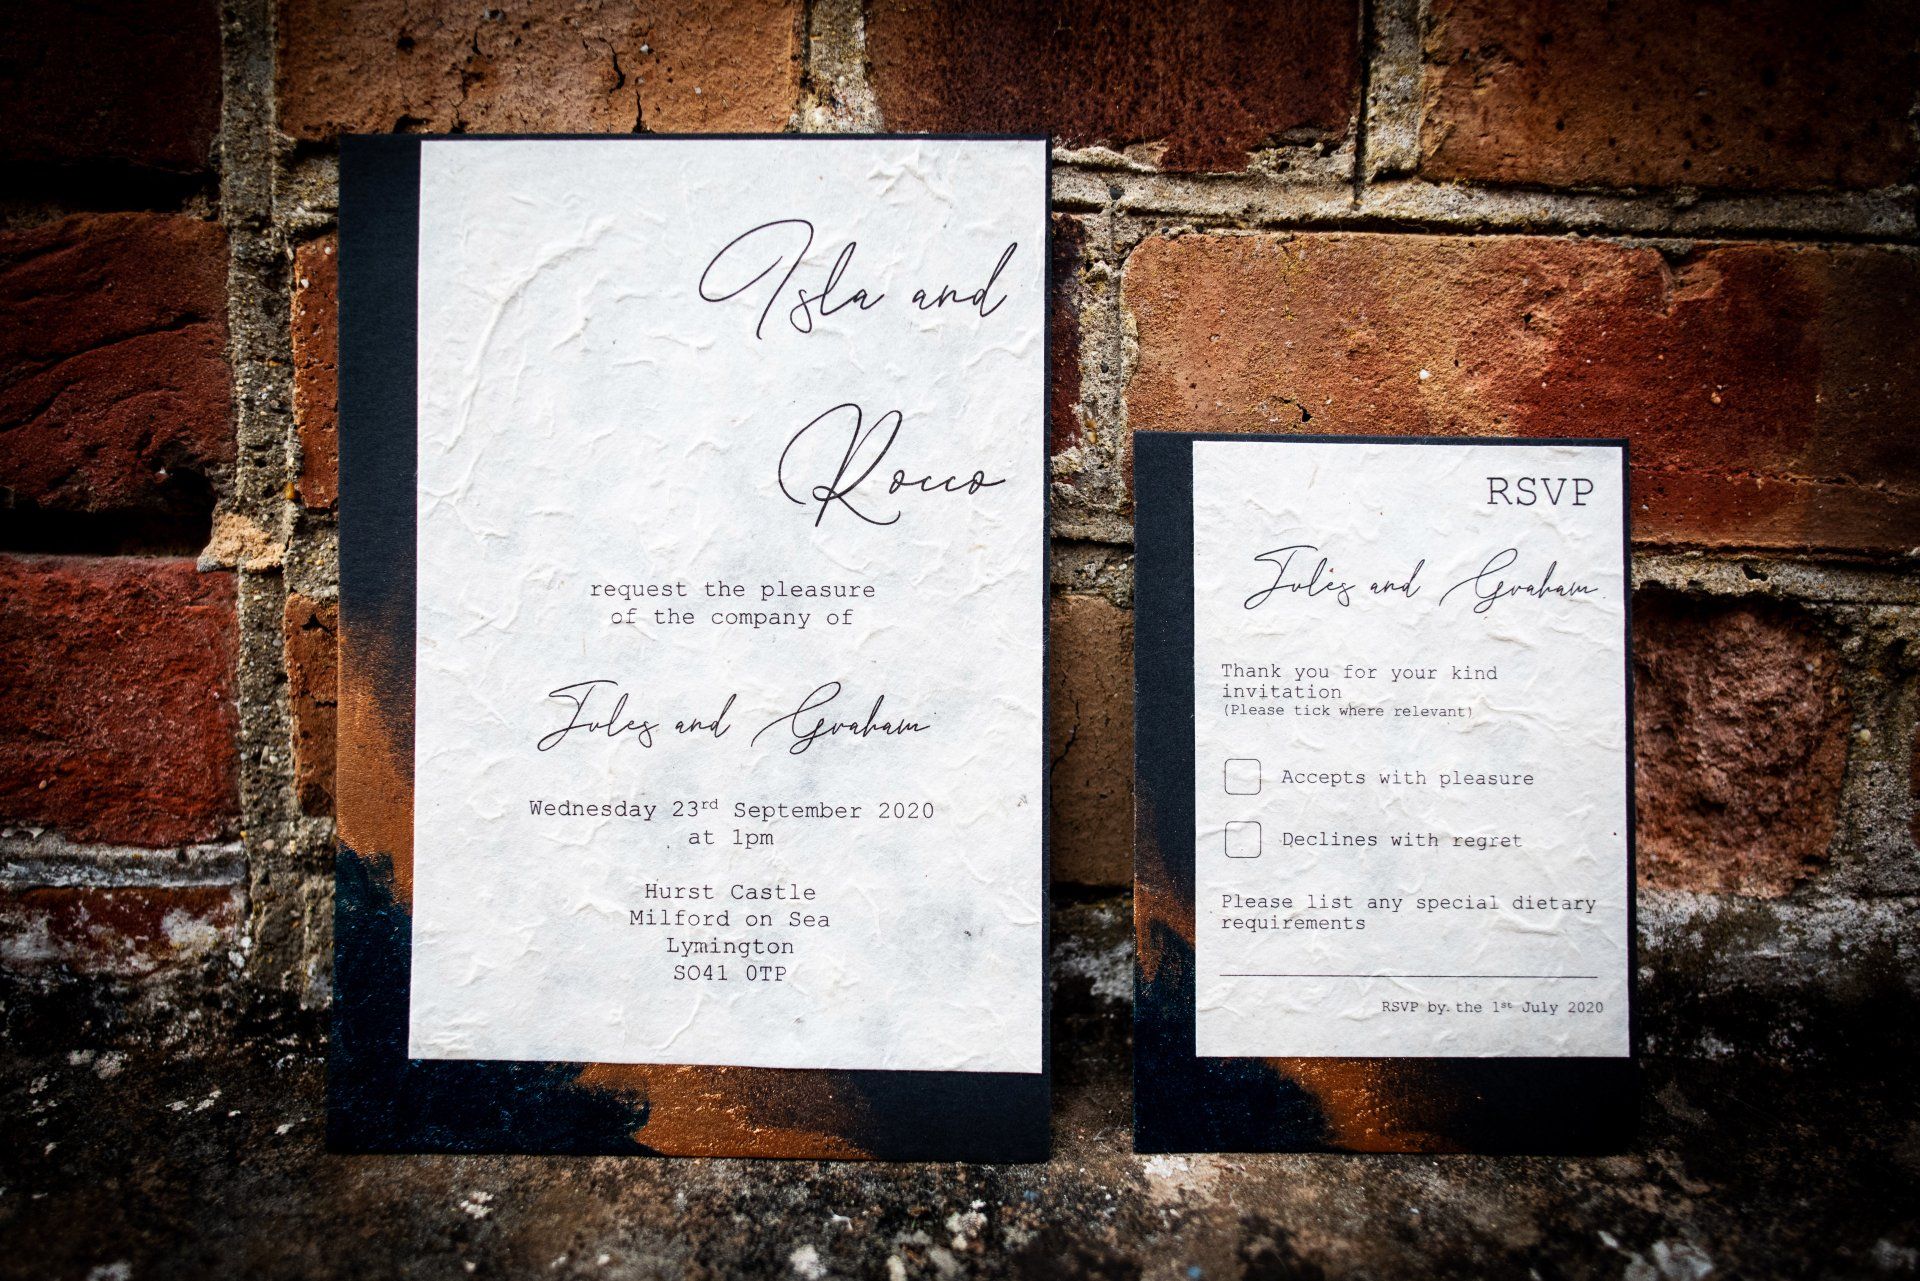 Isla and
Rocco
request the pleasure
of the company of
Jules and Graham
Wednesday 23rd September 2020
at 1pm
Hurst Castle
Milford on Sea
Lymington
SO41 0TP
RSVP
Jules and Graham
Thank you for your kind
invitation
(Please tick where relevant)
Accepts with pleasure
Declines with regret
Please list any special dietary
requirements
RSVP by the 1st July 2020